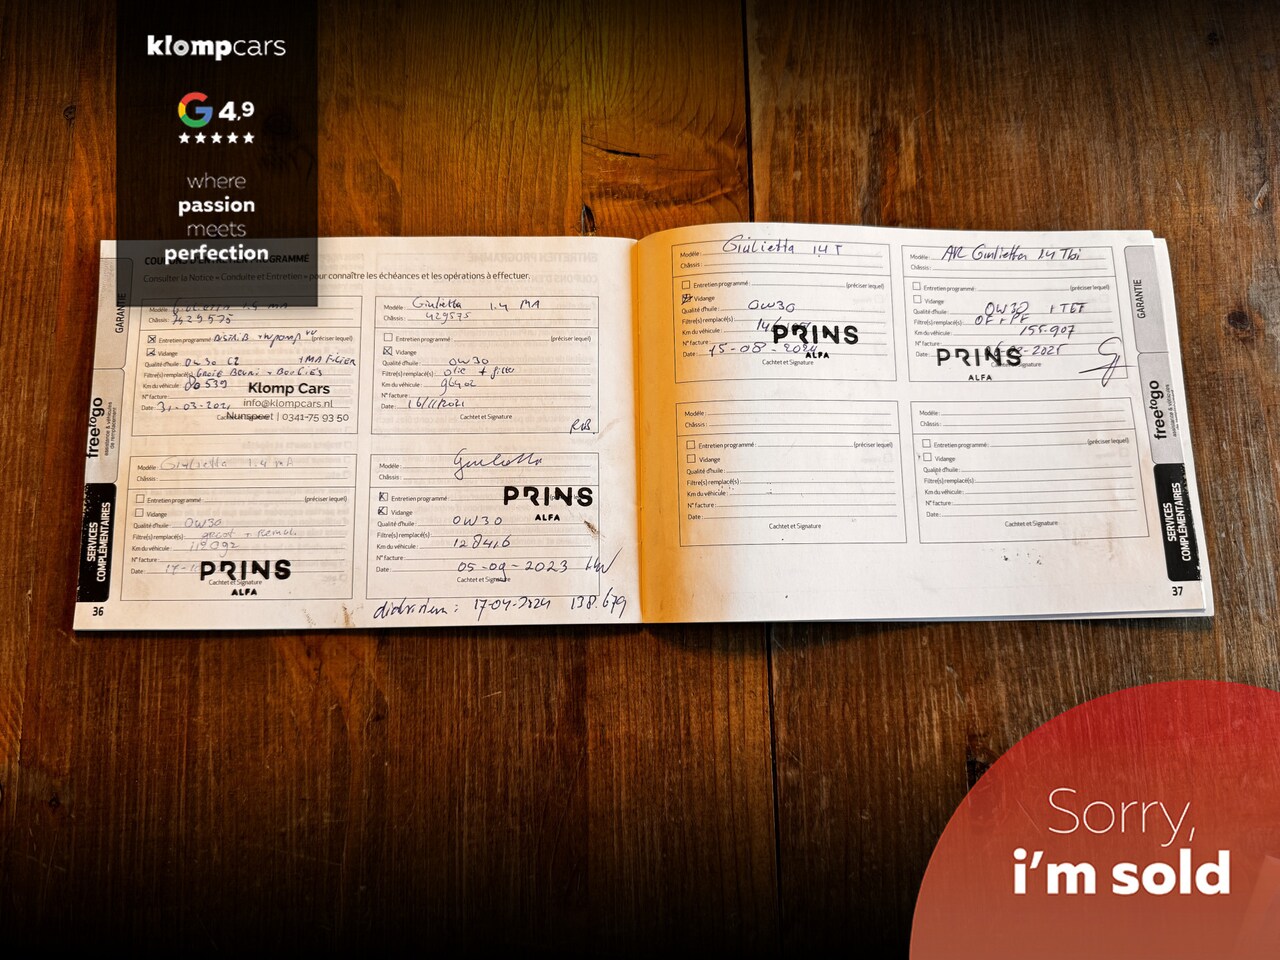 klompcars
4,9
where
passion
meets
perfection
Consulter la Notice « Conduite et Entretien » pour connaître les échéances et les opérations à effectuer.
GARANTIE
freetogo
SERVICES COMPLÉMENTAIRES
36
Modèle :
Châssis : 7429575
Entretien programmé : (préciser lequel)
Vidange
Qualité d'huile : 0W30
Filtre(s) remplacé(s) :
Km du véhicule : 80539
N° facture :
Date : 31-03-2021
Klomp Cars
info@klompcars.nl
Nunspeet | 0341-75 93 50
Modèle : Giulietta 1.4 MA
Châssis : 429575
Entretien programmé : (préciser lequel)
Vidange
Qualité d'huile : 0W30
Filtre(s) remplacé(s) : olie + filter
Km du véhicule : 96402
N° facture :
Date : 16/11/2021
Cachtet et Signature
Modèle : Giulietta 1.4 MA
Châssis :
Entretien programmé : (préciser lequel)
Vidange
Qualité d'huile : 0W30
Filtre(s) remplacé(s) :
Km du véhicule : 112092
N° facture :
Date :
PRINS
ALFA
Cachtet et Signature
Modèle : Giulietta
Châssis :
Entretien programmé :
Vidange
Qualité d'huile : 0W30
Filtre(s) remplacé(s) :
Km du véhicule : 128416
N° facture :
Date : 05-09-2023
PRINS
ALFA
Cachtet et Signature
17-04-2024 138.679
Modèle : Giulietta 1.4 T
Châssis :
Entretien programmé : (préciser lequel)
Vidange
Qualité d'huile : 0W30
Filtre(s) remplacé(s) :
Km du véhicule :
N° facture :
Date : 15-08-2024
PRINS
ALFA
Cachtet et Signature
Modèle : AR Giulietta 1.4 Tbi
Châssis :
Entretien programmé : (préciser lequel)
Vidange
Qualité d'huile : 0W30
Filtre(s) remplacé(s) : OF + PF
Km du véhicule : 155.907
N° facture :
Date :
PRINS
ALFA
Cachtet et Signature
Modèle :
Châssis :
Entretien programmé : (préciser lequel)
Vidange
Qualité d'huile :
Filtre(s) remplacé(s) :
Km du véhicule :
N° facture :
Date :
Cachtet et Signature
Modèle :
Châssis :
Entretien programmé : (préciser lequel)
Vidange
Qualité d'huile :
Filtre(s) remplacé(s) :
Km du véhicule :
N° facture :
Date :
Cachtet et Signature
GARANTIE
freetogo
SERVICES COMPLÉMENTAIRES
37
Sorry,
i'm sold